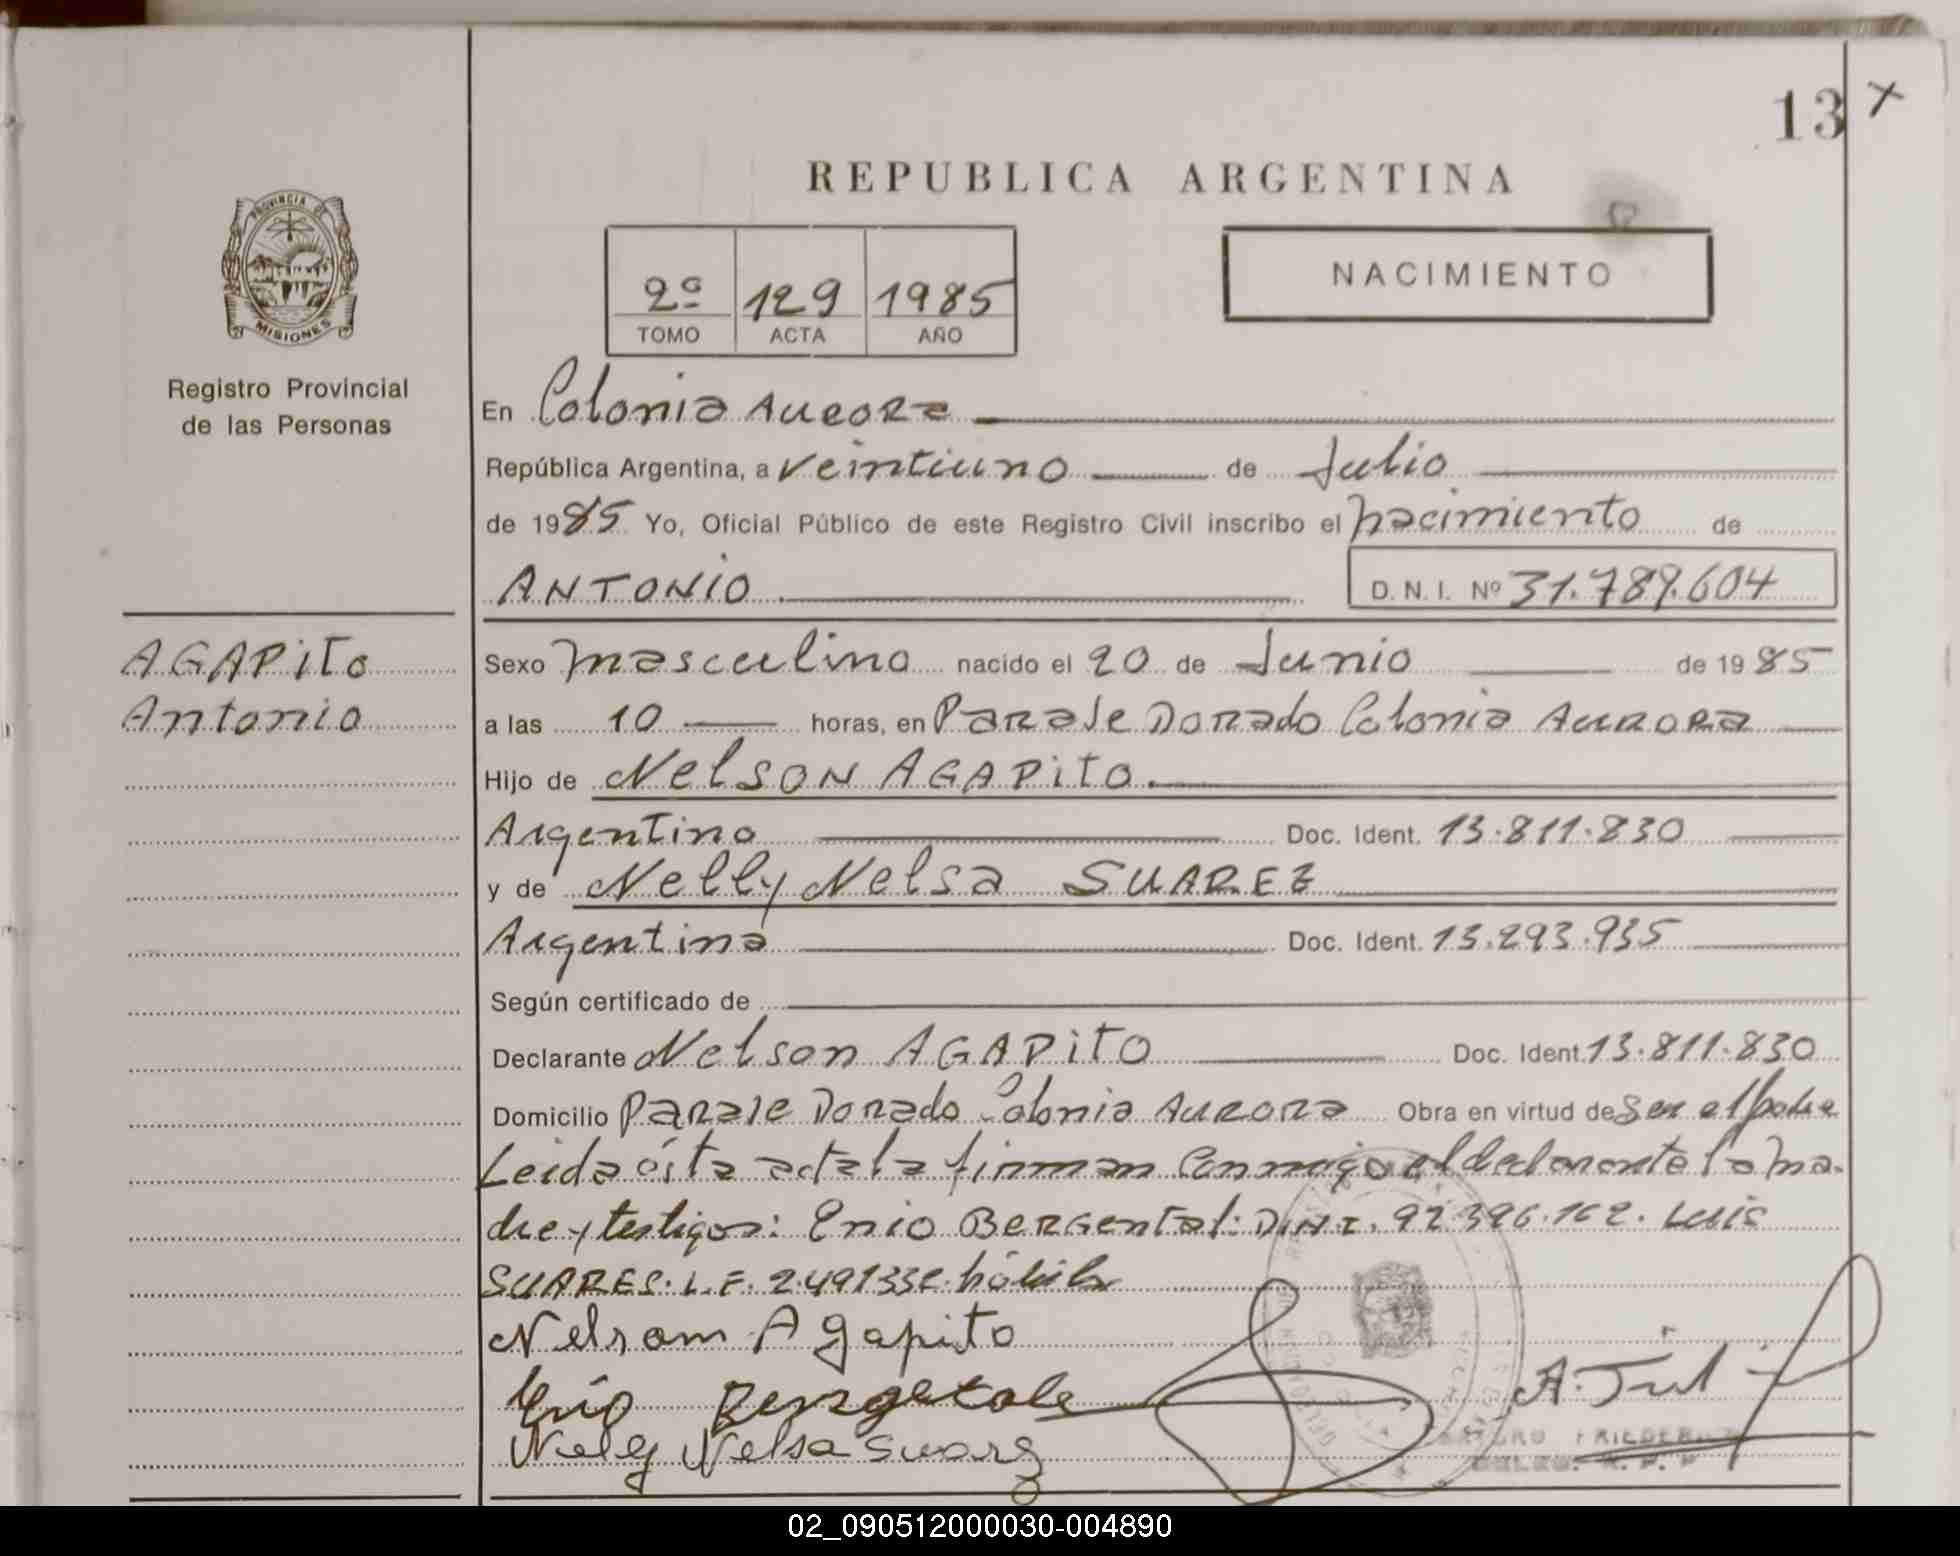 13 x
REPUBLICA ARGENTINA
PROVINCIA DE
MISIONES
Registro Provincial
de las Personas
2º 129 1985
TOMO ACTA AÑO
NACIMIENTO
En Colonia Aurora
República Argentina, a veintiuno de Julio
de 1985 Yo, Oficial Público de este Registro Civil inscribo el nacimiento de
ANTONIO D. N. I. Nº 31.789.604
AGAPITO
Antonio
Sexo masculino nacido el 20 de Junio de 1985
a las 10 horas, en Paraje Dorado Colonia Aurora
Hijo de Nelson AGAPITO
Argentino Doc. Ident. 13.811.830
y de Nelly Nelsa SUAREZ
Argentina Doc. Ident. 13.293.935
Según certificado de
Declarante Nelson AGAPITO Doc. Ident. 13.811.830
Domicilio Paraje Dorado Colonia Aurora Obra en virtud de ser el padre
Leida ésta acta la firman conmigo el declarante la ma-
dre y testigos: Enio Bergental: D.N.I. 92.396.162. Luis
SUARES. L.E. 2.491332 hábiles
Nelsom Agapito
Enio
Nely Nelsa Suarez
ARTURO
02_090512000030-004890